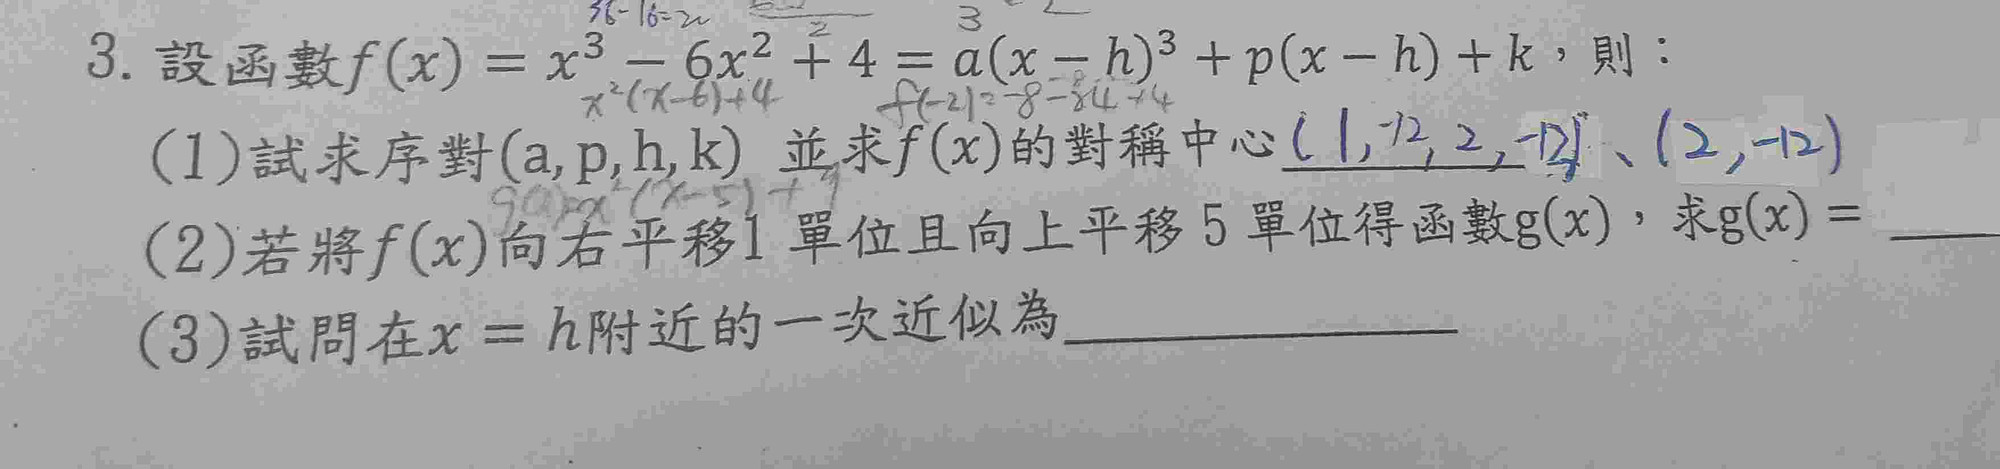 36-16=20
3
2
3. 設函數f(x) = x³ − 6x² + 4 = a(x − h)³ + p(x − h) + k，則：
x²(x-6)+4 f(-2)=-8-24+4
(1)試求序對(a, p, h, k) 並求f(x)的對稱中心(1,-12,2,-12)、(2,-12)
(2)若將f(x)向右平移1 單位且向上平移 5 單位得函數g(x)，求g(x) =
(3)試問在x = h附近的一次近似為